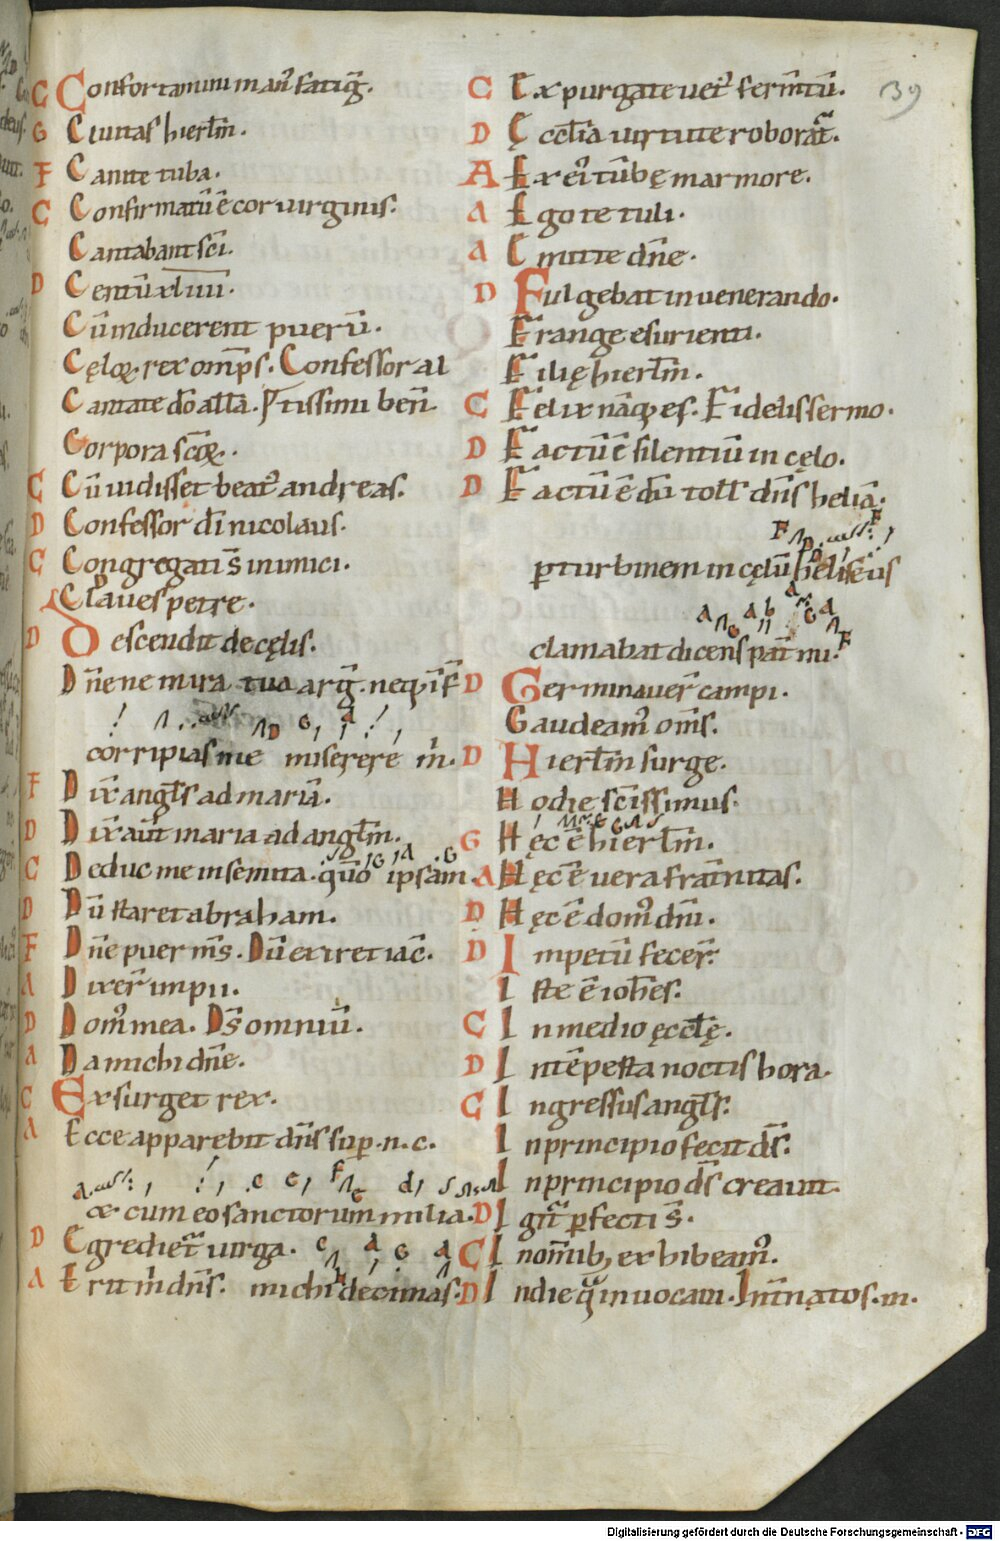 39
C Confortamini man᷒ fatig̅.
G Ciuitas hierl̅m.
F Canite tuba.
C Confirmatū ē cor uirginis.
Cantabant sc̅i.
D Centū xl iiii.
Cū inducerent puerū.
Cęloꝝ rex om̅ps. Confessor al
Cantate dō all̅a.
Corpora sc̅oꝝ.
C Cū uidisset beat᷒ andreas.
D Confessor dī nicolaus.
C Congregati s̅ inimici.
Claues petre.
D Descendit de cęlis.
Dn̅e ne in ira tua arg̅. neq; ī f̅
corripias me miserere m̅.
F Dix̅ angl̅s ad mariā.
D Dix̅ aut̅ maria ad angl̅m.
C Deduc me in semita. quō ipsam.
D Dū staret abraham.
F Dn̅e puer m̅s. Dū exiret iac̅.
A Dixer̅ impii.
D Dom᷒ mea. D̅s omniū.
A Da michi dn̅e.
C Exsurget rex.
A Ecce apparebit dn̅s sup̱. n. c.
& cum eo sanctorum milia.
D Egrediet᷑ uirga.
A Erit m̅ dn̅s. michi decimas.
C Expurgate uet᷒ ferm̅tū.
D Ęccl̅ia uirtute roborat᷑.
A Ex ei᷒ tūbę marmore.
A Ego te tuli.
A Emitte dn̅e.
D Fulgebat in uenerando.
Frange esurienti.
Filię hierl̅m.
C Felix nāq; es. Fidelis sermo.
D Factū ē silentiū in cęlo.
D Factū ē dū toll̅ dn̅s heliā.
ꝑ turbinem in cęlū heliseus
clamabat dicens pat̅ mi.
D Germinauer̅ campi.
Gaudeam᷒ om̅s.
D Hierl̅m surge.
Hodie sc̅issimus.
G Hęc ē hierl̅m.
A Hęc ē uera frat̅nitas.
D Hęc ē dom᷒ dn̅i.
D Impetū fecer̅.
Iste ē ioh̅es.
C In medio ęccl̅ę.
D Int̅pesta noctis hora.
C Ingressus angl̅s.
In principio fecit d̅s.
In principio d̅s creauit.
D Ignt̅ ꝑfecti s̅.
C I nom̅nib; exhibeam᷒.
D In die q̅ inuocaui. Int̅ natos. m.
Digitalisierung gefördert durch die Deutsche Forschungsgemeinschaft - DFG